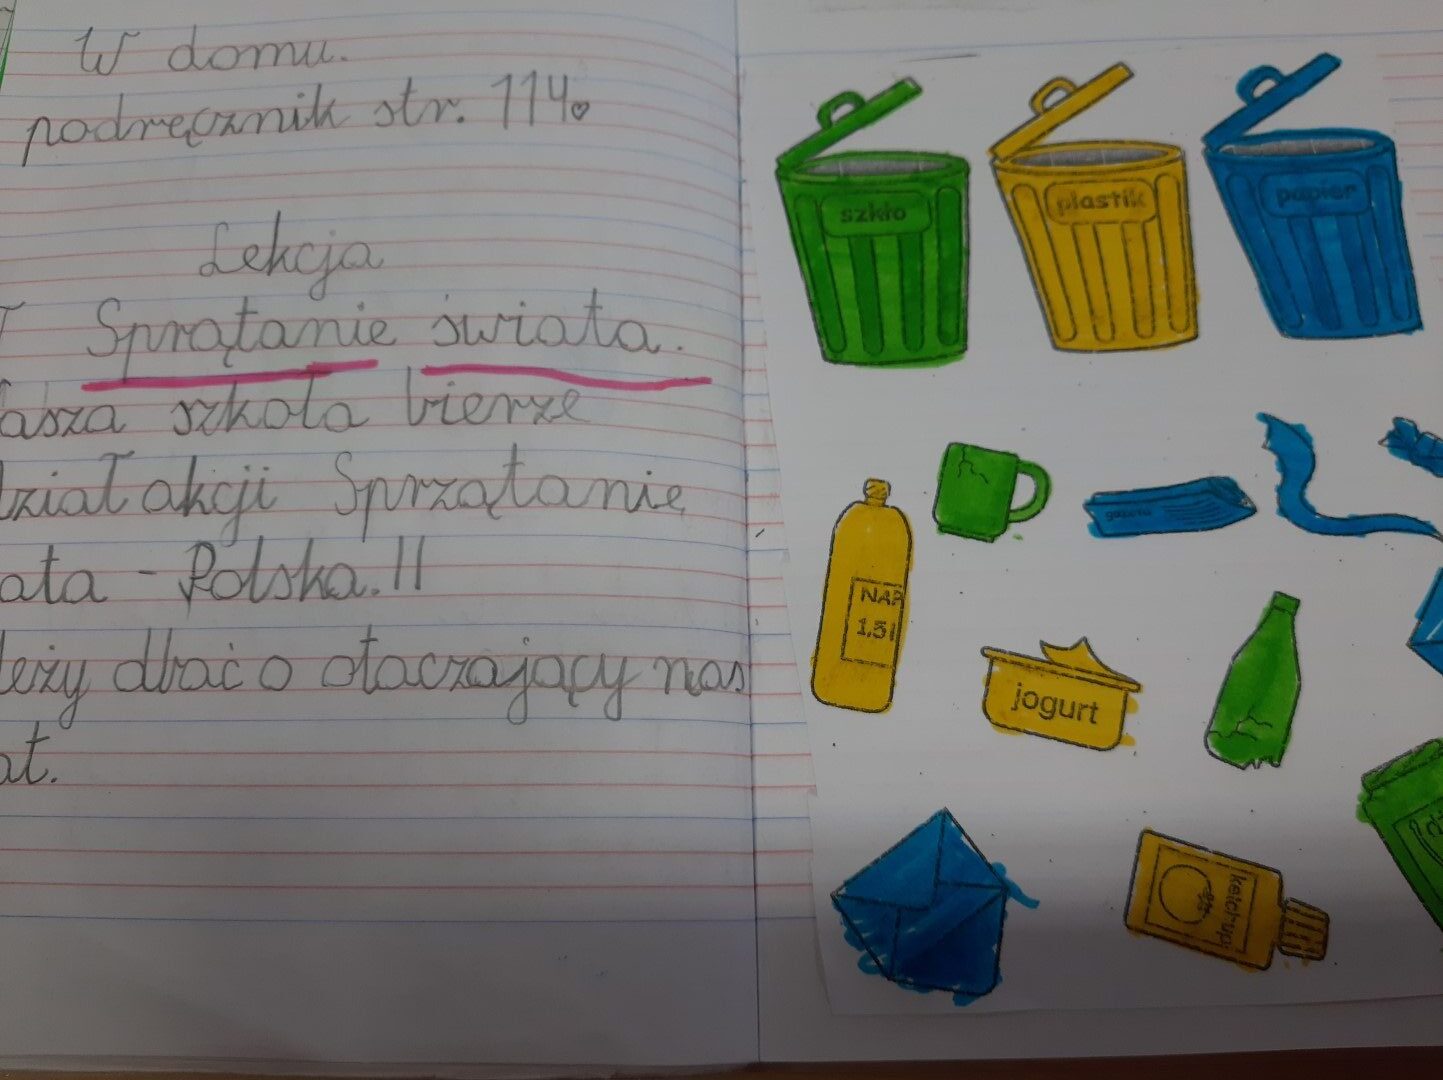 W domu.
podręcznik str. 114.
Lekcja
T Sprątanie świata.
asza szkoła bierze
dział akcji Sprzątanie
ata - Polska. II
leży dbać o otaczający nas
at.
szkło
plastik
papier
gazeta
NAP
1,5 l
jogurt
ketchup